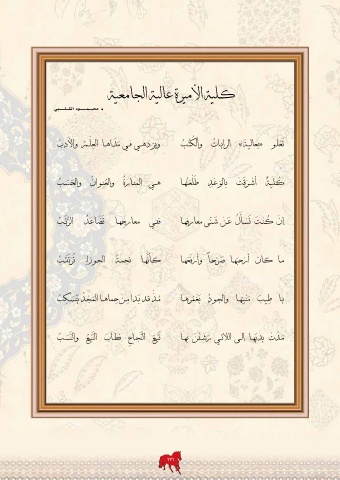 كلية الأميرة عالية الجامعية
تَعْلو «بعالية» الراياتُ والكُتُبُ ويزدهي في مَدَاها العِلمُ والأدبُ
كُليةٌ أشرقَتْ بالوَعدِ طَلْعَتُها هي المنارةُ والعُنوانُ والحَسَبُ
إن كُنتَ تَسألُ عَنْ شَتّى معارفها ففي معارجها تَصّاعَدُ الرُّتَبُ
ما كان أبرَحها صَرحاً وأرفعها كأنّها نجمةُ الجوزاءِ تَرتقبُ
يا طِيبَ مَنبَتِها والجودُ يَغمُرُها مُذ قد بَدا مِن حِماها المَجْدُ يَنسَكِبُ
مَدّتْ يديها إلى اللائي يَرتشفنَ بها نَبْعَ النّجاحِ فطابَ النّبْعُ والنّسَبُ